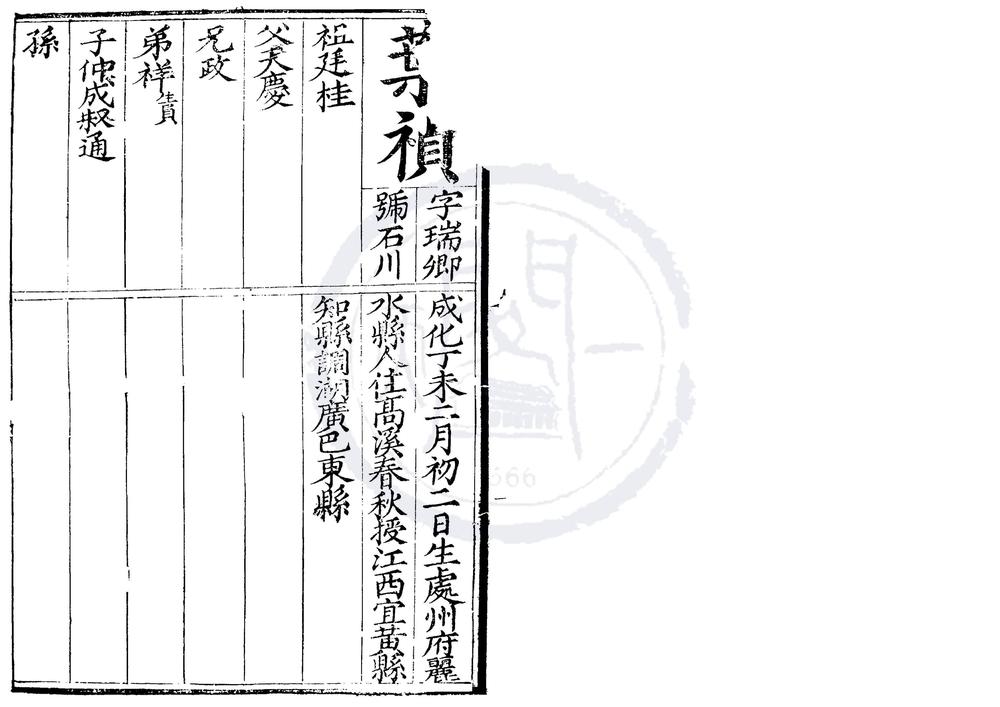 禎
字瑞卿
號石川
成化丁未二月初二日生處州府麗
水縣人住高溪春秋授江西宜黃縣
知縣調湖廣巴東縣
祖廷桂
父天慶
兄政
弟祥
子仲成叔通
孫